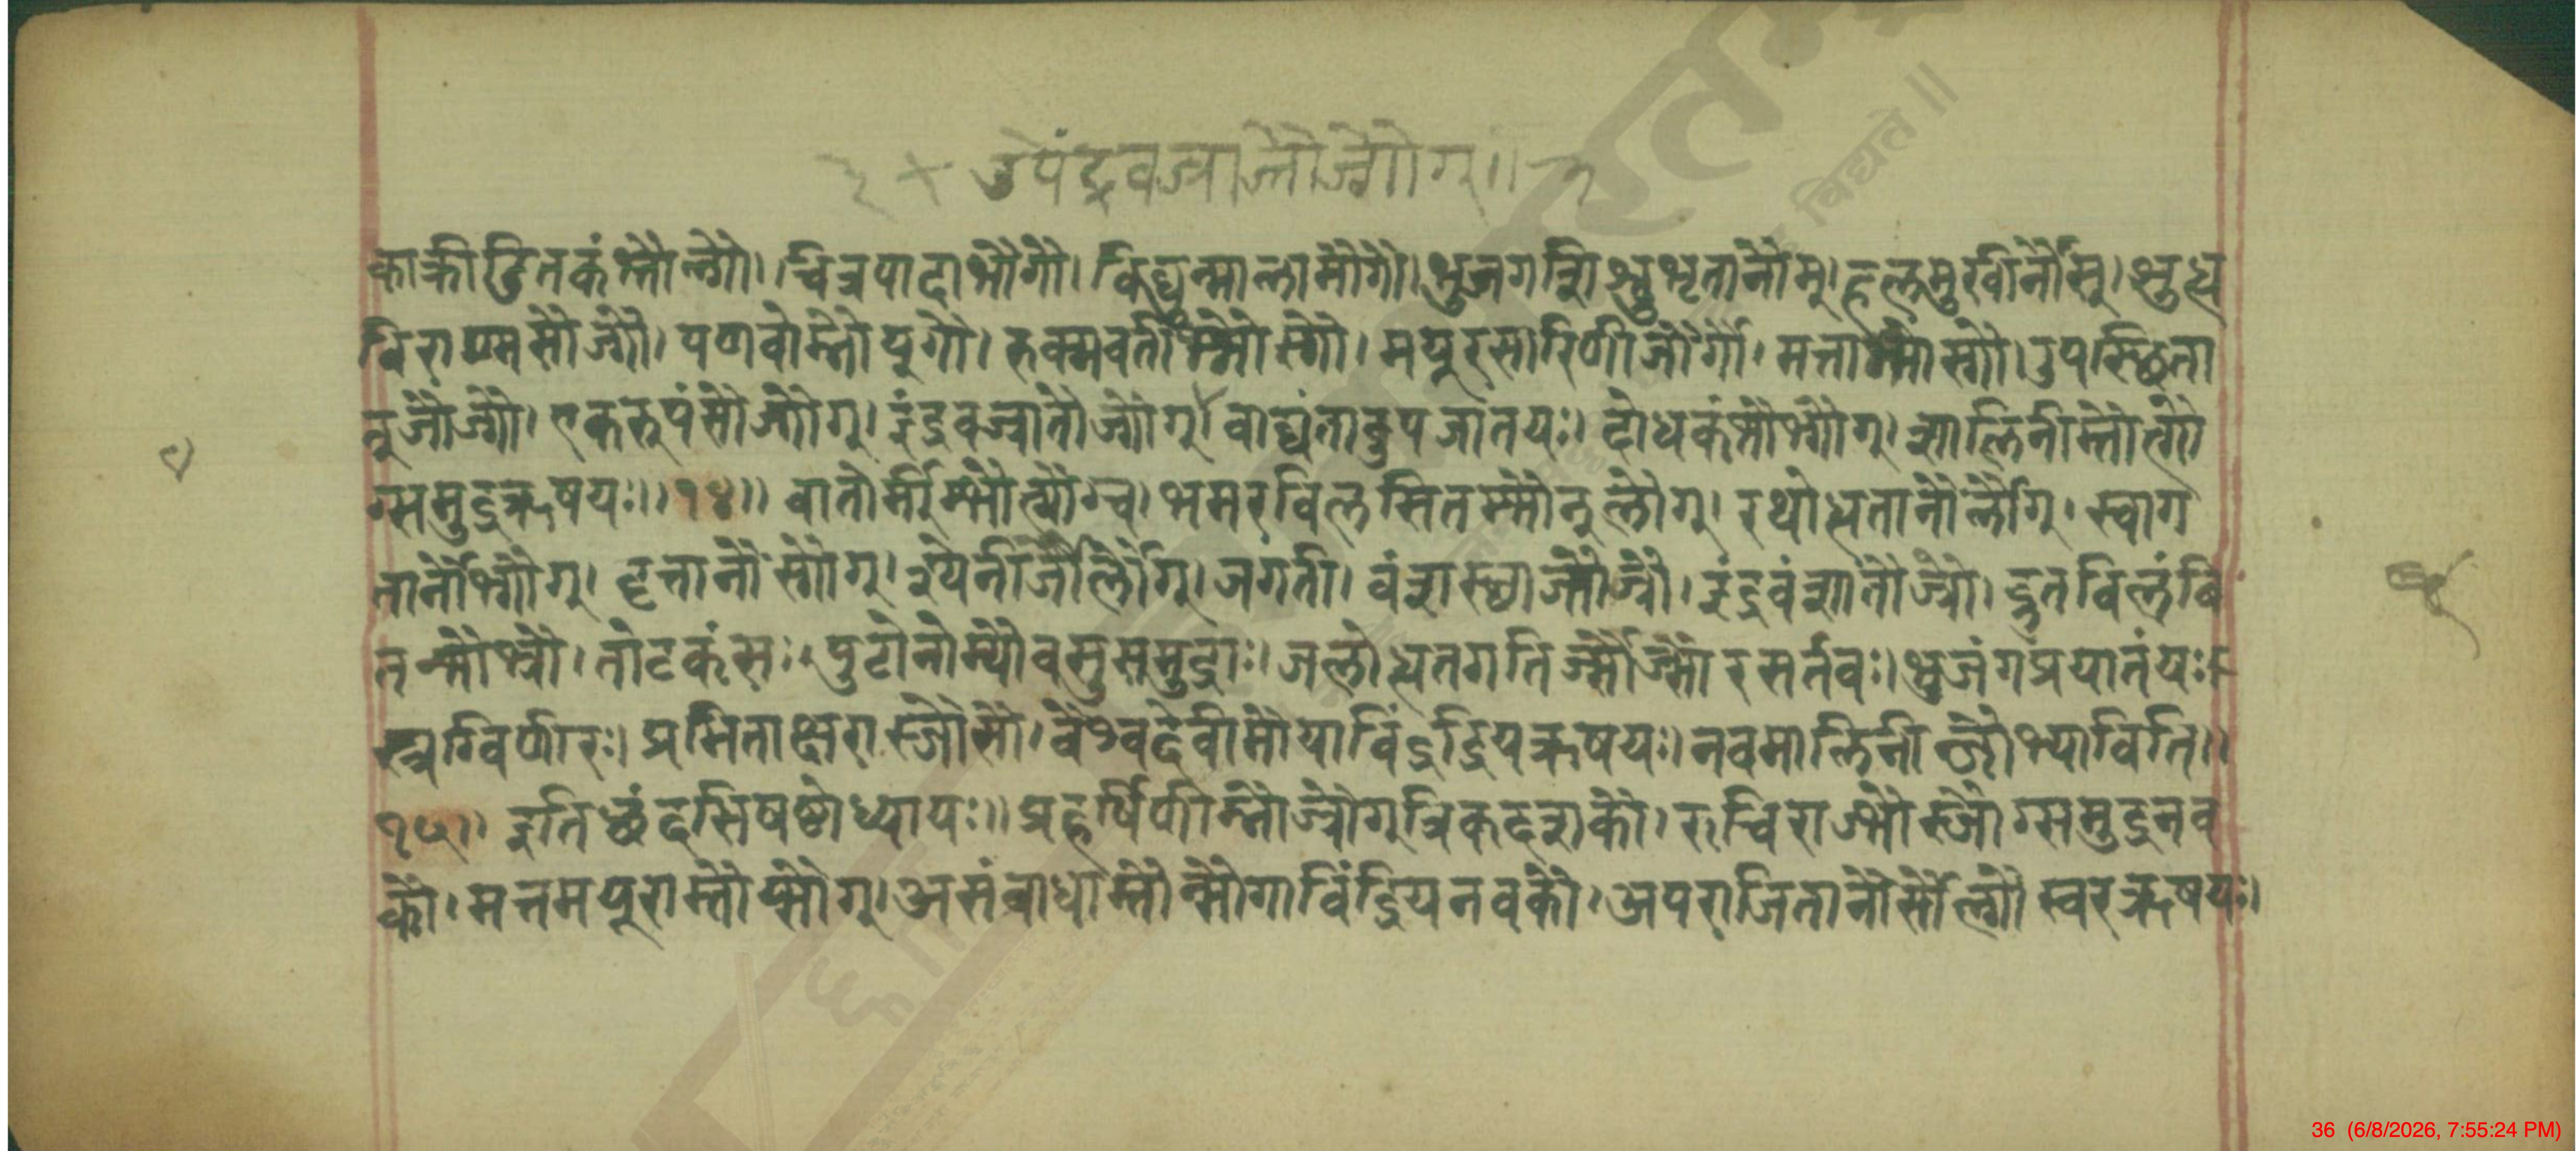 ३ + उपेंद्रवज्राज्तौज्गौग्॥ ३
काक्रीडितकंभ्तौल्गौ। चित्रपादाभौगौ। विद्युन्मालामौगौ। भुजगशिशुभृतानौम्। हलमुखीर्नौस्। शुध्द
विराण्मसौज्गौ। पणवोम्नौय्गौ। रुक्मवतीभ्मौस्गौ। मयूरसारिणीर्जौर्गौ। मत्ताम्भौस्गौ। उपस्थिता
त्जौज्गौ। एकरूपंसौज्गौग्। इंद्रवज्रातौज्गौग् वाद्यंतावुपजातयः। दोधकंभौभ्गौग्। शालिनीम्तौत्गौ
ग्समुद्रऋषयः॥१४॥ वातोर्मीम्भौत्गौग्च। भ्रमरविलसितम्म्भौन्लौग्। रथोध्दतार्नौर्लौग्। स्वाग
तार्नौभ्गौग्। वृत्तानौस्गौग्। श्येनीर्जौर्लौग्। जगती। वंशस्थाज्तौज्रौ। इंद्रवंशातौज्रौ। द्रुतविलंबि
तन्भौभ्रौ। तोटकंसः। पुटोनौम्यौवसुसमुद्राः। जलोध्दतगतिर्ज्सौज्सौ रसर्तवः। भुजंगप्रयातंयः।
स्रग्विणीरः। प्रमिताक्षरास्जौसौ। वैश्वदेवीमौयाविंद्रियऋषयः। नवमालिनीन्जौभ्याविति॥
१५॥ इतिछंदसिषष्ठोध्यायः॥ प्रहर्षिणीम्नौज्रौग्त्रिकदशकौ। रुचिराज्भौस्जौग्समुद्रनव
कौ। मत्तमयूराम्तौय्सौग्। असंबाधाम्तौन्सौगाविंद्रियनवकौ। अपराजितानौर्सौल्गौ स्वरऋषयः।
36 (6/8/2026, 7:55:24 PM)